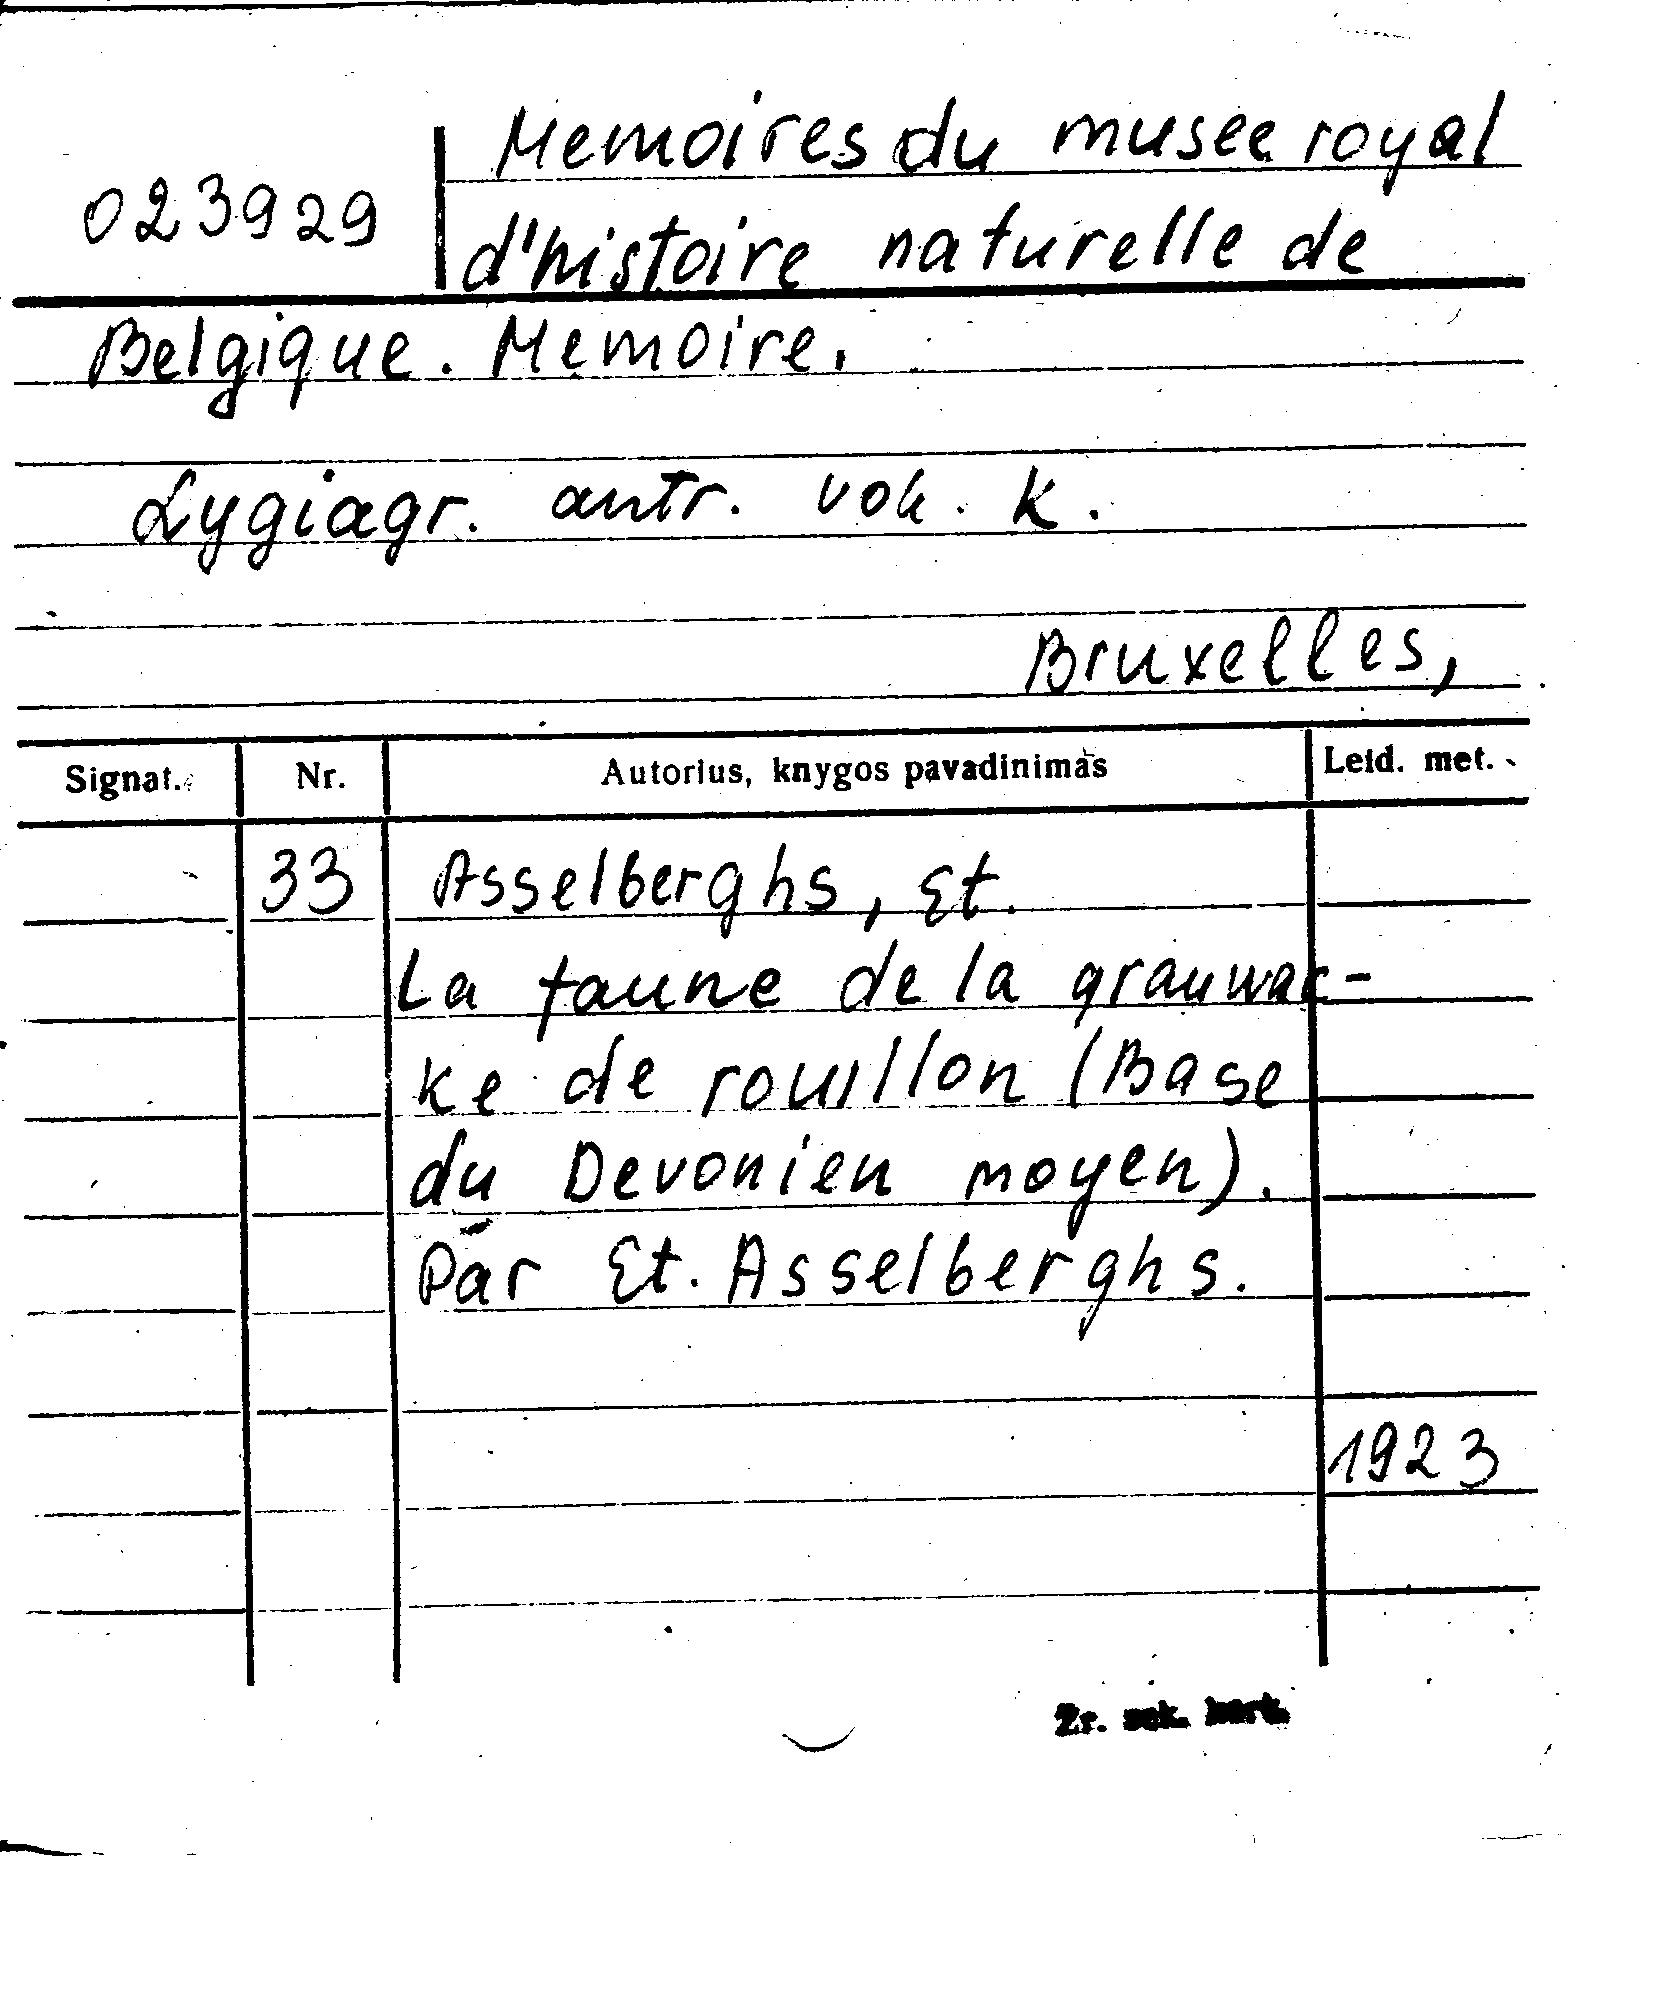 Memoires du musee royal
023929
d'histoire naturelle de
Belgique. Memoire.
Lygiagr. antr. vok. k.
Bruxelles,
Signat. Nr. Autorius, knygos pavadinimas Leid. met.
33 Asselberghs, Et.
La faune de la grauwac-
ke de rouillon (Base
du Devonien moyen).
Par Et. Asselberghs.
1923
Žr. sek. kort.